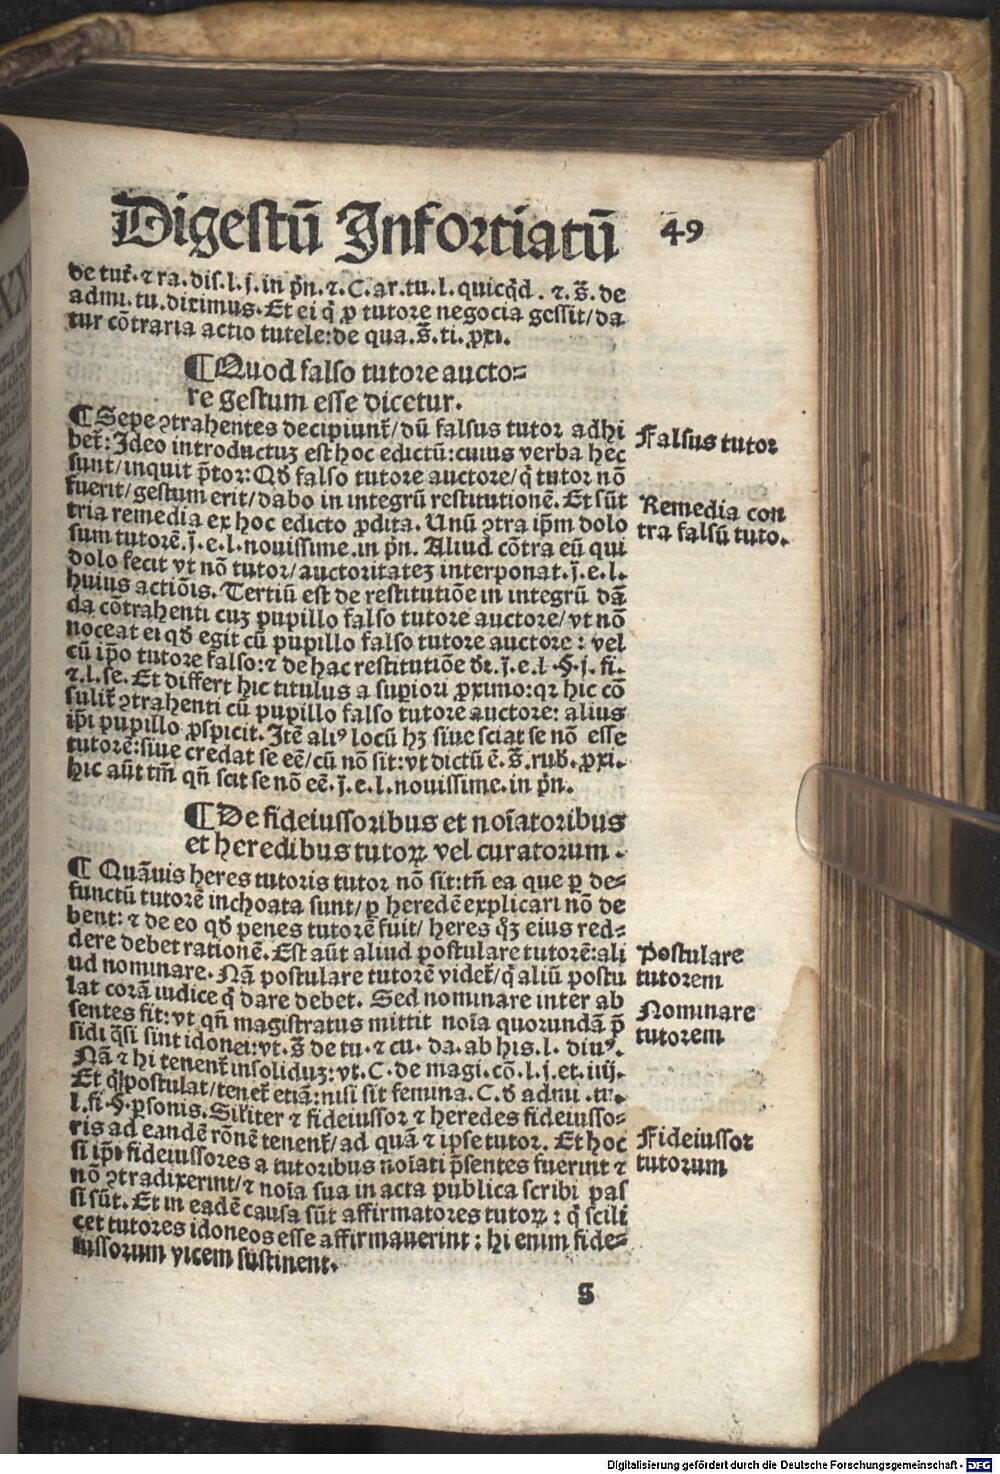 Digestū Infortiatū 49
de tut̄. ⁊ ra. dis. l. j. in p̄n. ⁊. C. ar. tu. l. quicq̄d. ⁊. s̄. de
admi. tu. diximus. Et ei q̄ ꝓ tutore negocia gessit/da
tur cōtraria actio tutele: de qua. s̄. ti. ꝓxi.
¶ Quod falso tutore aucto⸗
re gestum esse dicetur.
¶ Sepe ꝯtrahentes decipiunt̄/dū falsus tutor adhi
bet̄: Ideo introductuꝫ est hoc edictū: cuius verba hec
sunt/inquit p̄tor: Qđ falso tutore auctore/q̄ tutor nō
fuerit/gestum erit/dabo in integrū restitutionē. Et sūt
tria remedia ex hoc edicto ꝓdita. Unū ꝯtra ip̄m dolo
sum tutorē. j̄. e. l. nouissime. in p̄n. Aliud cōtra eū qui
dolo fecit vt nō tutor/auctoritateꝫ interponat. j̄. e. l.
huius actiōis. Tertiū est de restitutiōe in integrū dā
da cōtrahenti cuꝫ pupillo falso tutore auctore/vt nō
noceat ei qđ egit cū pupillo falso tutore auctore: vel
cū ip̄o tutore falso: ⁊ de hac restitutiōe đr. j̄. e. l. §. j. fi.
⁊. l. se. Et differt hic titulus a supiori ꝓximo: qꝛ hic cō
sulit̄ ꝯtrahenti cū pupillo falso tutore auctore: alius
ip̄i pupillo ꝓspicit. Itē aliꝰ locū hꝫ siue sciat se nō esse
tutorē: siue credat se eē/cū nō sit: vt dictū ē. s̄. rub̄. ꝓxi.
hic aūt tm̄ qn̄ scit se nō eē. j̄. e. l. nouissime. in p̄n.
¶ De fideiussoribus et noīatoribus
et heredibus tutoꝝ vel curatorum.
¶ Quāuis heres tutoris tutor nō sit: tn̄ ea que ꝑ de⸗
functū tutorē inchoata sunt/ꝑ heredē explicari nō de
bent: ⁊ de eo qđ penes tutorē fuit/heres qꝫ eius red⸗
dere debet rationē. Est aūt aliud postulare tutorē: ali
ud nominare. Nā postulare tutorē videt̄/q̄ aliū postu
lat corā iudice q̄ dare debet. Sed nominare inter ab
sentes fit: vt qn̄ magistratus mittit noīa quorundā p̄
sidi q̄si sint idonei: vt. s̄ de tu. ⁊ cu. da. ab his. l. diuꝰ.
Nā ⁊ hi tenent̄ insoliduꝫ: vt. C. de magi. cō. l. j. et. iiij.
Et q̄ postulat/tenet̄ etiā: nisi sit femina. C. đ admi. tu.
l. fi. §. ꝑsonis. Siliter ⁊ fideiussor ⁊ heredes fideiusso⸗
ris ad eandē rōnē tenent̄/ad quā ⁊ ipse tutor. Et hoc
si ip̄i fideiussores a tutoribus noīati p̄sentes fuerint ⁊
nō ꝯtradixerint/⁊ noīa sua in acta publica scribi pas
si sūt. Et in eadē causa sūt affirmatores tutoꝝ: q̄ scili
cet tutores idoneos esse affirmauerint: hi enim fide⸗
iussorum vicem sustinent.
Falsus tutor
Remedia con
tra falsū tuto.
Postulare
tutorem
Nominare
tutorem
Fideiussor
tutorum
g
Digitalisierung gefördert durch die Deutsche Forschungsgemeinschaft - DFG